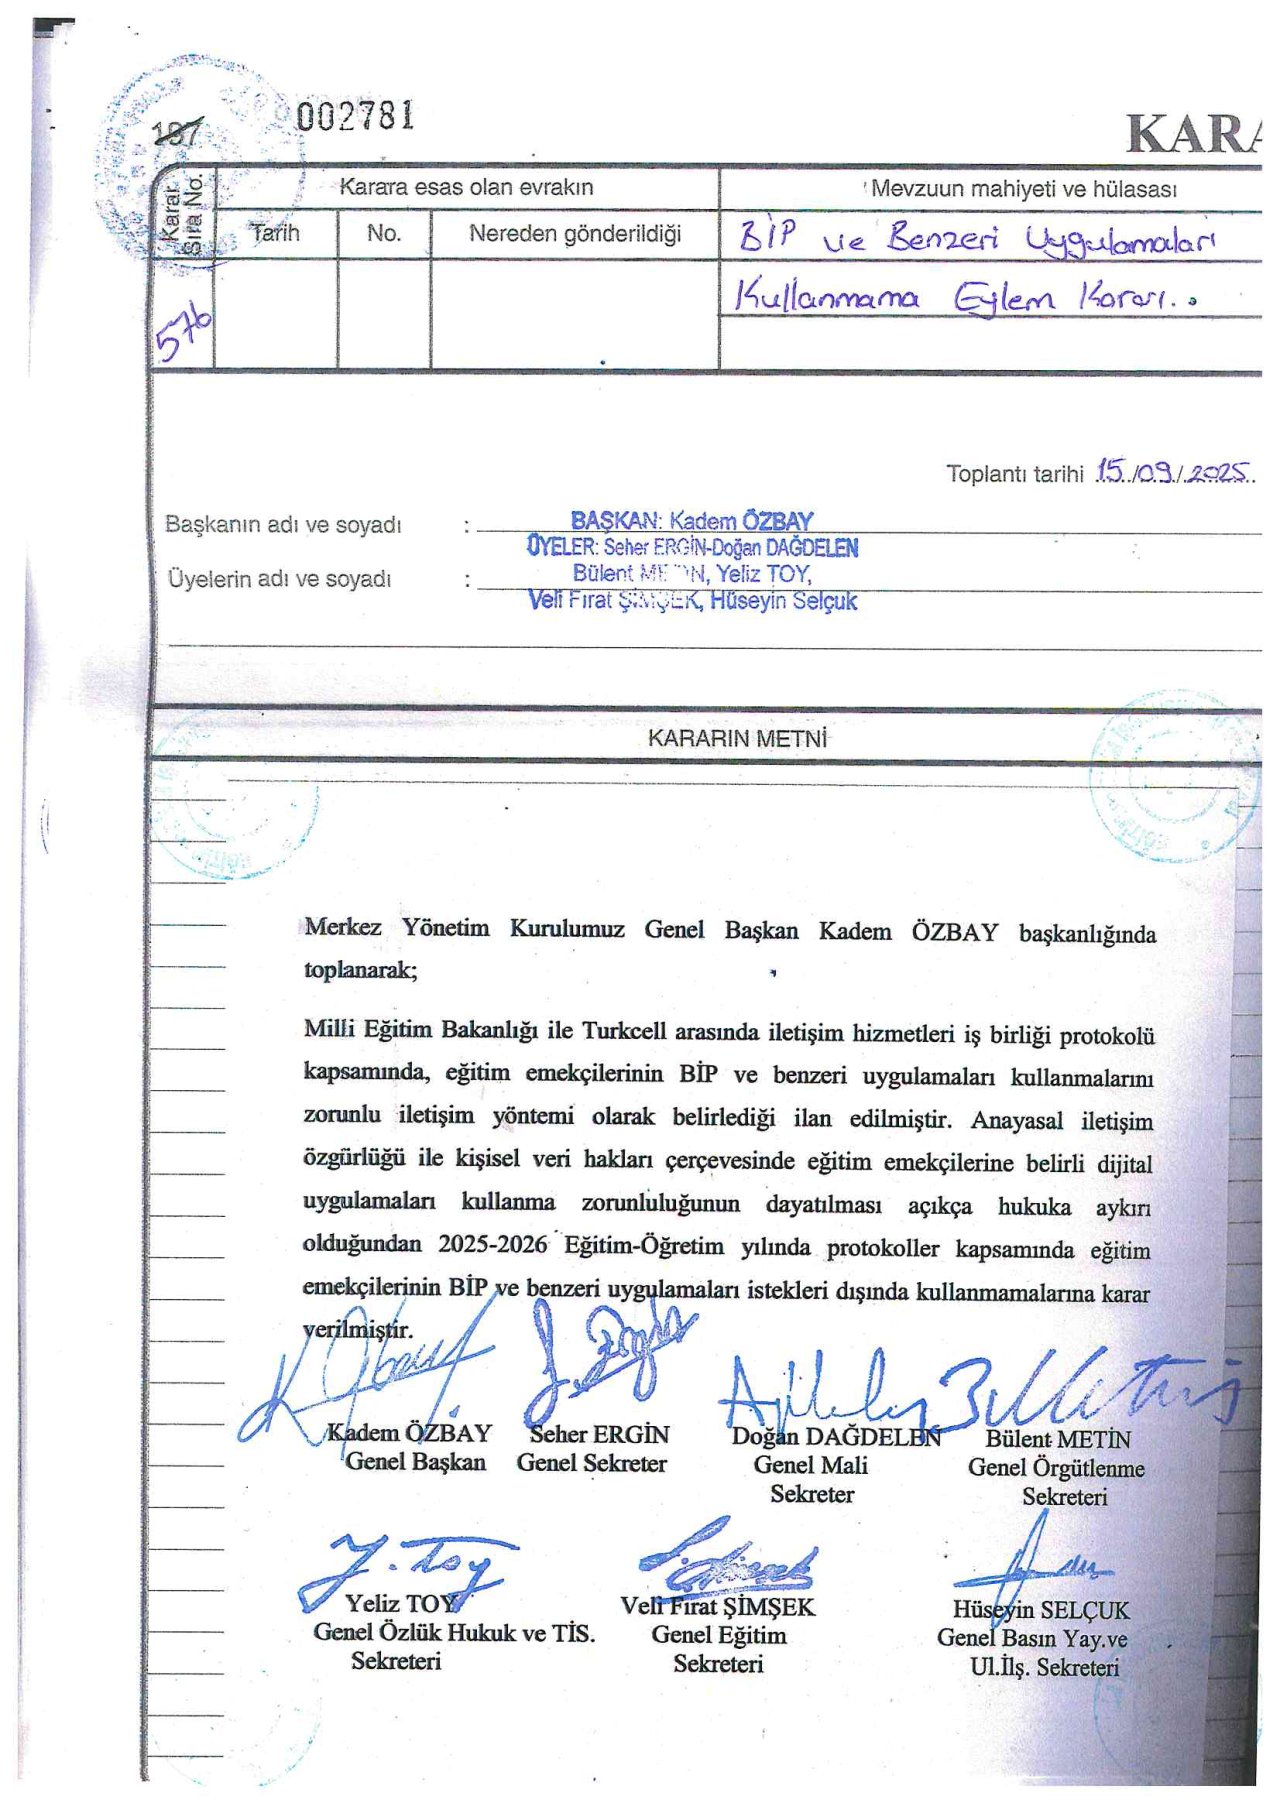 002781
187
KARA
Karar Sıra No.
Karara esas olan evrakın
Mevzuun mahiyeti ve hülasası
Tarih
No.
Nereden gönderildiği
BİP ve Benzeri Uygulamaları
Kullanmama Eylem Kararı.
576
Toplantı tarihi 15/09/2025
Başkanın adı ve soyadı :
BAŞKAN: Kadem ÖZBAY
ÜYELER: Seher ERGİN-Doğan DAĞDELEN
Üyelerin adı ve soyadı :
Bülent METİN, Yeliz TOY,
Veli Fırat ŞİMŞEK, Hüseyin Selçuk
KARARIN METNİ
Merkez Yönetim Kurulumuz Genel Başkan Kadem ÖZBAY başkanlığında
toplanarak;
Milli Eğitim Bakanlığı ile Turkcell arasında iletişim hizmetleri iş birliği protokolü
kapsamında, eğitim emekçilerinin BİP ve benzeri uygulamaları kullanmalarını
zorunlu iletişim yöntemi olarak belirlediği ilan edilmiştir. Anayasal iletişim
özgürlüğü ile kişisel veri hakları çerçevesinde eğitim emekçilerine belirli dijital
uygulamaları kullanma zorunluluğunun dayatılması açıkça hukuka aykırı
olduğundan 2025-2026 Eğitim-Öğretim yılında protokoller kapsamında eğitim
emekçilerinin BİP ve benzeri uygulamaları istekleri dışında kullanmamalarına karar
verilmiştir.
Kadem ÖZBAY Seher ERGİN Doğan DAĞDELEN Bülent METİN
Genel Başkan Genel Sekreter Genel Mali Genel Örgütlenme
Sekreter Sekreteri
Y. Toy
Yeliz TOY Veli Fırat ŞİMŞEK Hüseyin SELÇUK
Genel Özlük Hukuk ve TİS. Genel Eğitim Genel Basın Yay.ve
Sekreteri Sekreteri Ul.İlş. Sekreteri